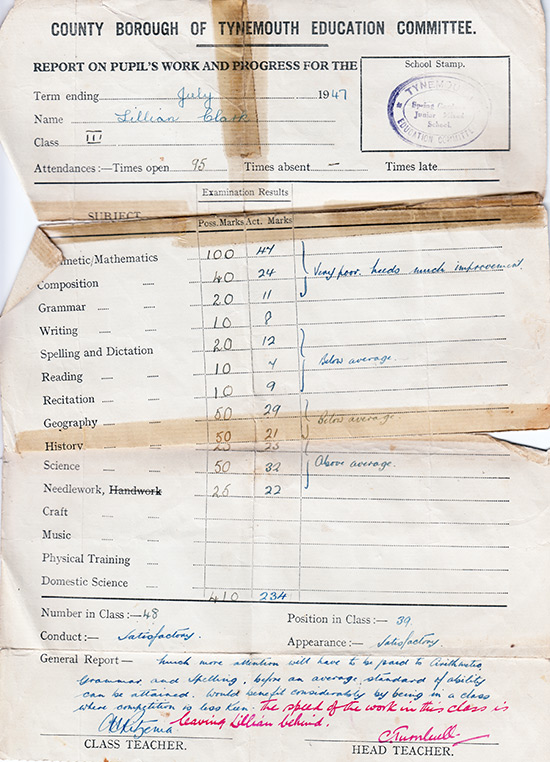 COUNTY BOROUGH OF TYNEMOUTH EDUCATION COMMITTEE.
REPORT ON PUPIL'S WORK AND PROGRESS FOR THE
School Stamp.
Term ending July 1947
TYNEMOUTH
Junior Mixed
School.
EDUCATION COMMITTEE
Name Lillian Clark
Class III
Attendances:—Times open 95 Times absent — Times late
Examination Results
SUBJECT Poss. Marks Act. Marks
metic/Mathematics 100 47
Composition 40 24 Very poor. Needs much improvement.
Grammar 20 11
Writing 10 8
Spelling and Dictation 20 12
Reading 10 4 Below average.
Recitation 10 9
Geography 50 29
Below average.
History 50 21
25 23
Science 50 32 Above average.
Needlework, Handwork 25 22
Craft
Music
Physical Training
Domestic Science
410 234
Number in Class:— 48 Position in Class:— 39.
Conduct:— Satisfactory. Appearance:— Satisfactory.
General Report— Much more attention will have to be paid to Arithmetic,
Grammar and Spelling, before an average standard of ability
can be attained. Would benefit considerably by being in a class
where competition is less keen. The speed of the work in this class is
leaving Lillian behind.
C Turnbull
CLASS TEACHER. HEAD TEACHER.